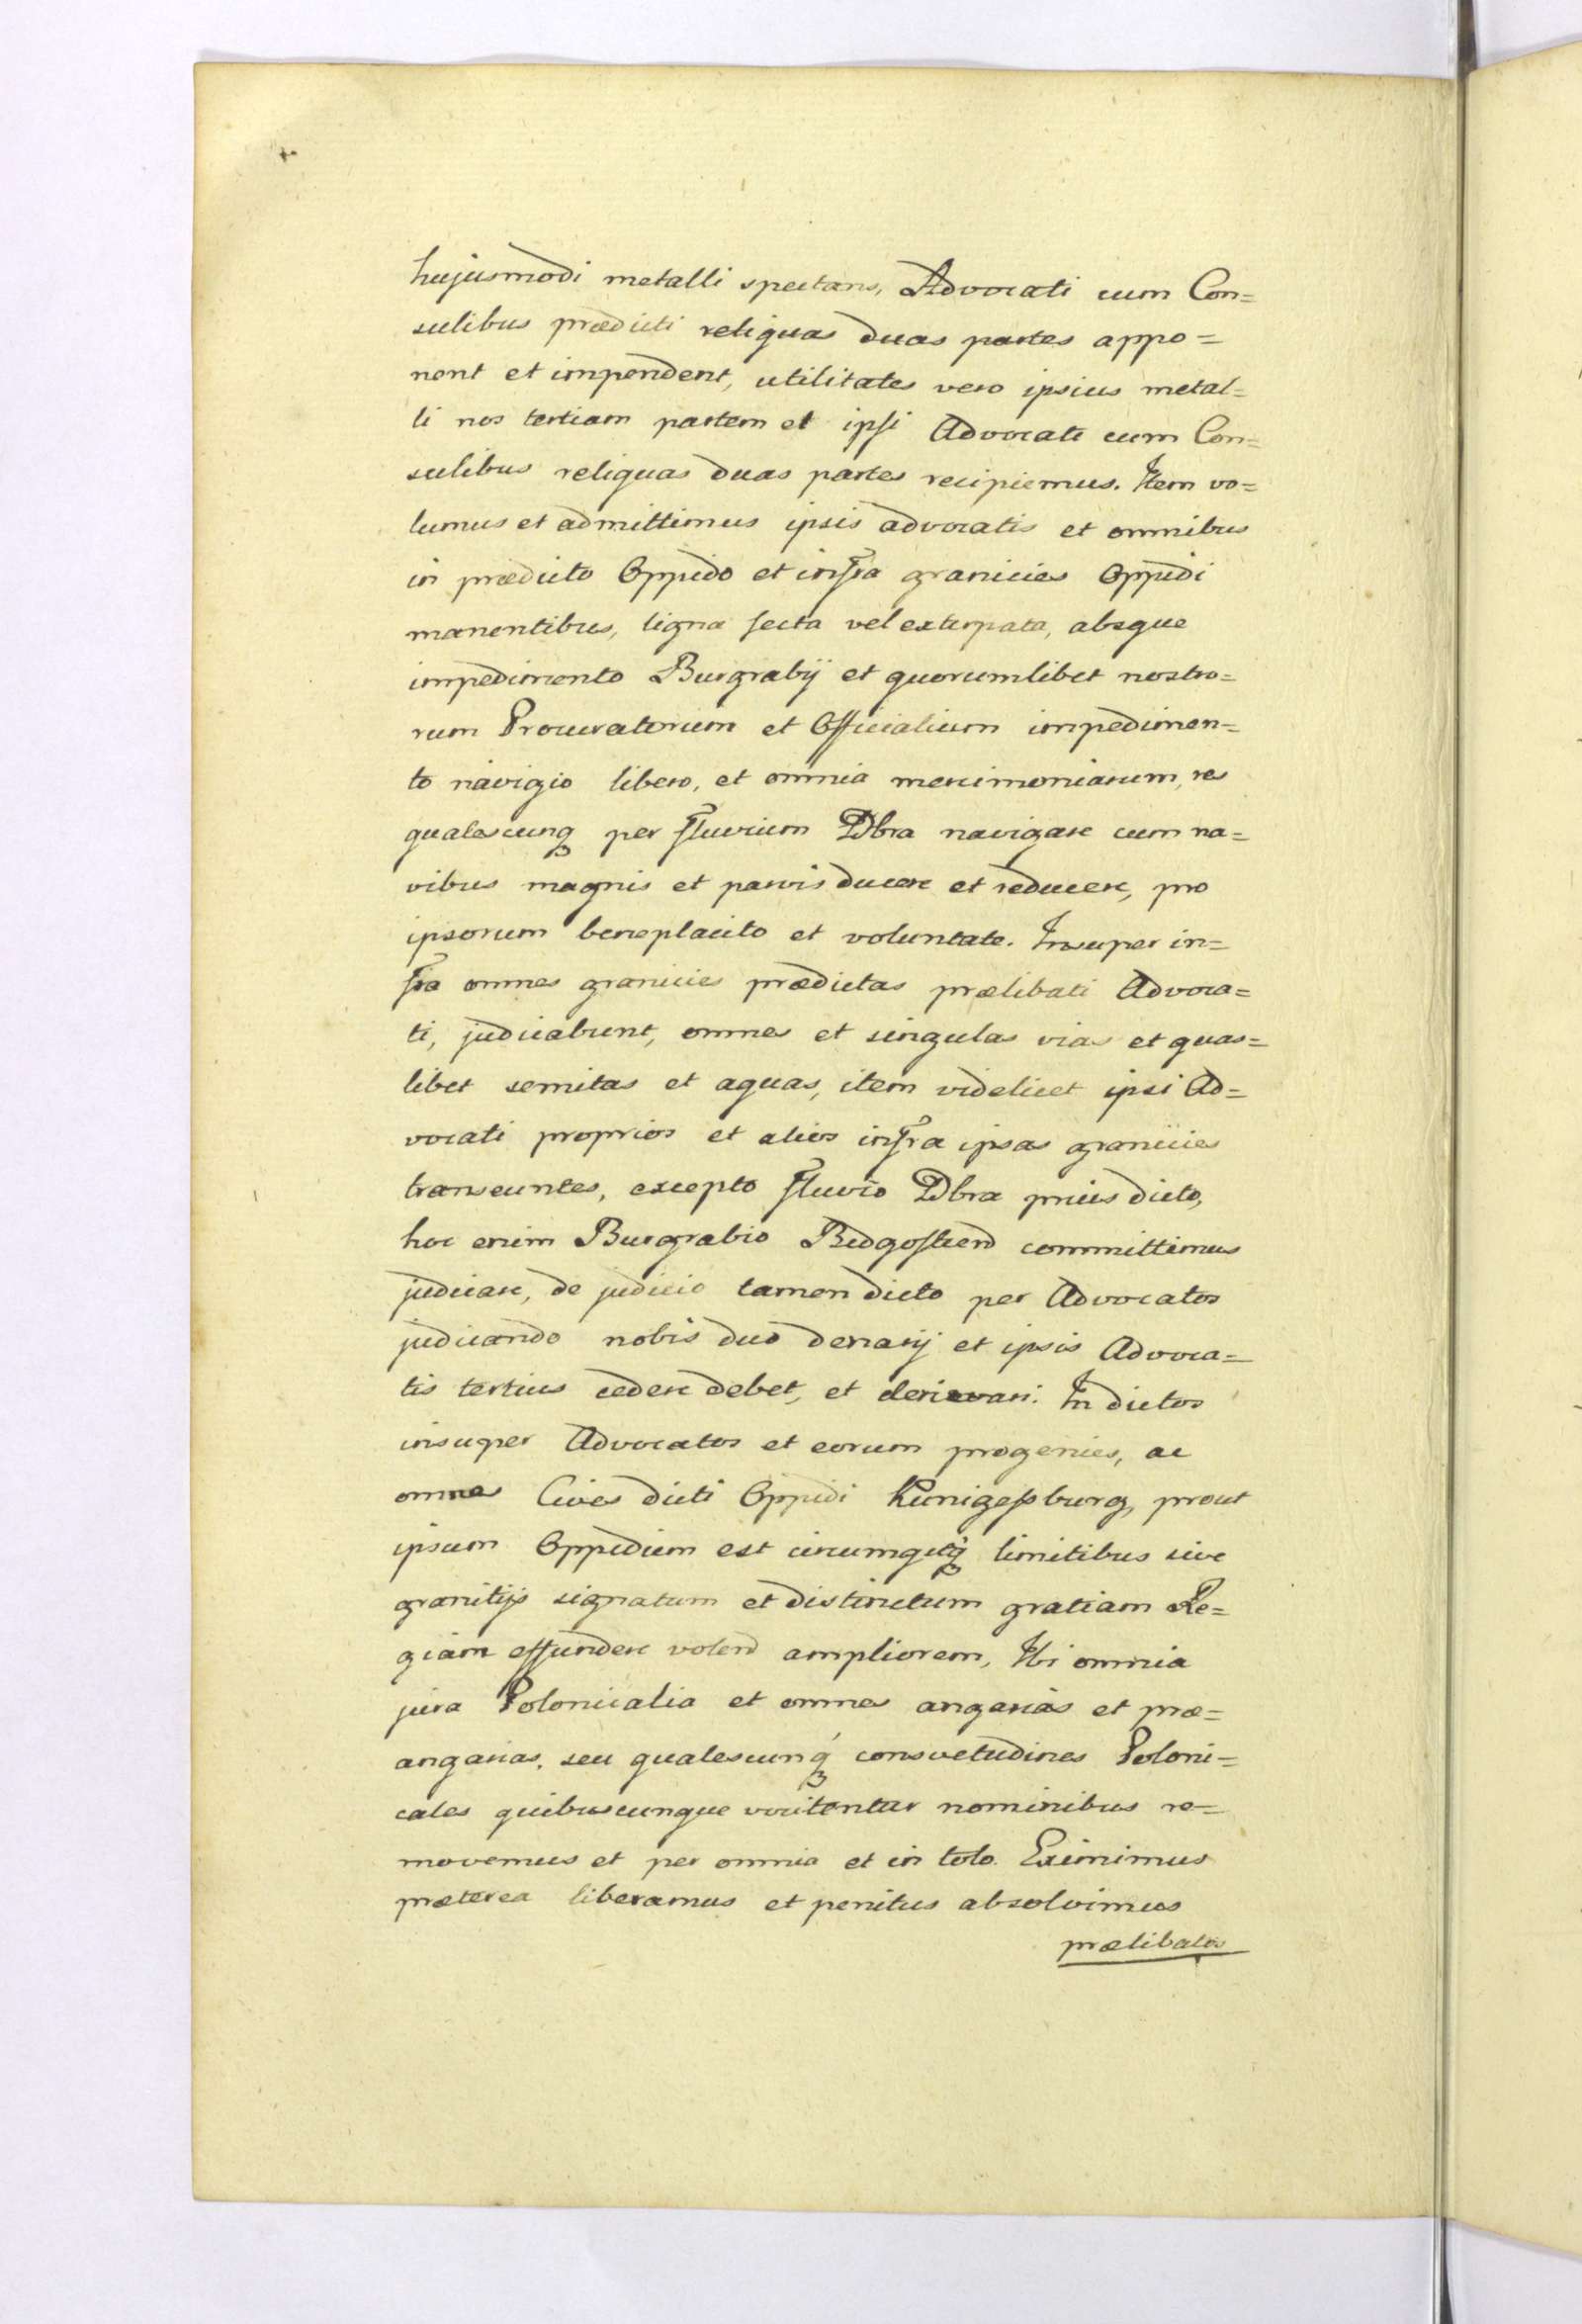 hujusmodi metalli spectans, Advocati cum Con=
sulibus prædicti reliquas duas partes appo=
nent et impendent, utilitates vero ipsius metal=
li nos tertiam partem et ipsi Advocati cum Con=
sulibus reliquas duas partes recipiemus. Item vo=
lumus et admittimus ipsis advocatis et omnibus
in prædicto Oppido et infra granicies Oppidi
manentibus, ligna secta vel exterpata, absque
impedimento Burgrabij et quorumlibet nostro=
rum Procuratorum et Officialium impedimen=
to navigio libero, et omnia mercimoniarum, res
qualescunq per fluvium Dbra navigare cum na=
vibus magnis et parvis ducere et reducere, pro
ipsorum beneplacito et voluntate. Insuper in=
fra omnes granicies prædictas prælibati Advoca=
ti, judicabunt, omnes et singulas vias et quas=
libet semitas et aquas, item videlicet ipsi Ad=
vocati proprios et alios infra ipsas granicies
transeuntes, excepto fluvio Dbra prius dicto,
hoc enim Burgrabio Bidgostien committimus
judicare, de judicio tamen dicto per Advocatos
judicando nobis duo denarij et ipsis Advoca=
tis tertius cedere debet, et derivari. In dictos
insuper Advocatos et eorum progenies, ac
omnes Cives dicti Oppidi Kunigesburg, prout
ipsum Oppidum est circumquq limitibus sive
granitijs signatum et distinctum gratiam Re=
giam effundere volen ampliorem, Ibi omnia
jura Polonicalia et omnes angarias et præ=
angarias, seu qualescunq consvetudines Poloni=
cales quibuscunque vocitentur nominibus re=
movemus et per omnia et in toto. Eximimus
præterea liberamus et penitus absolvimus
prælibatos